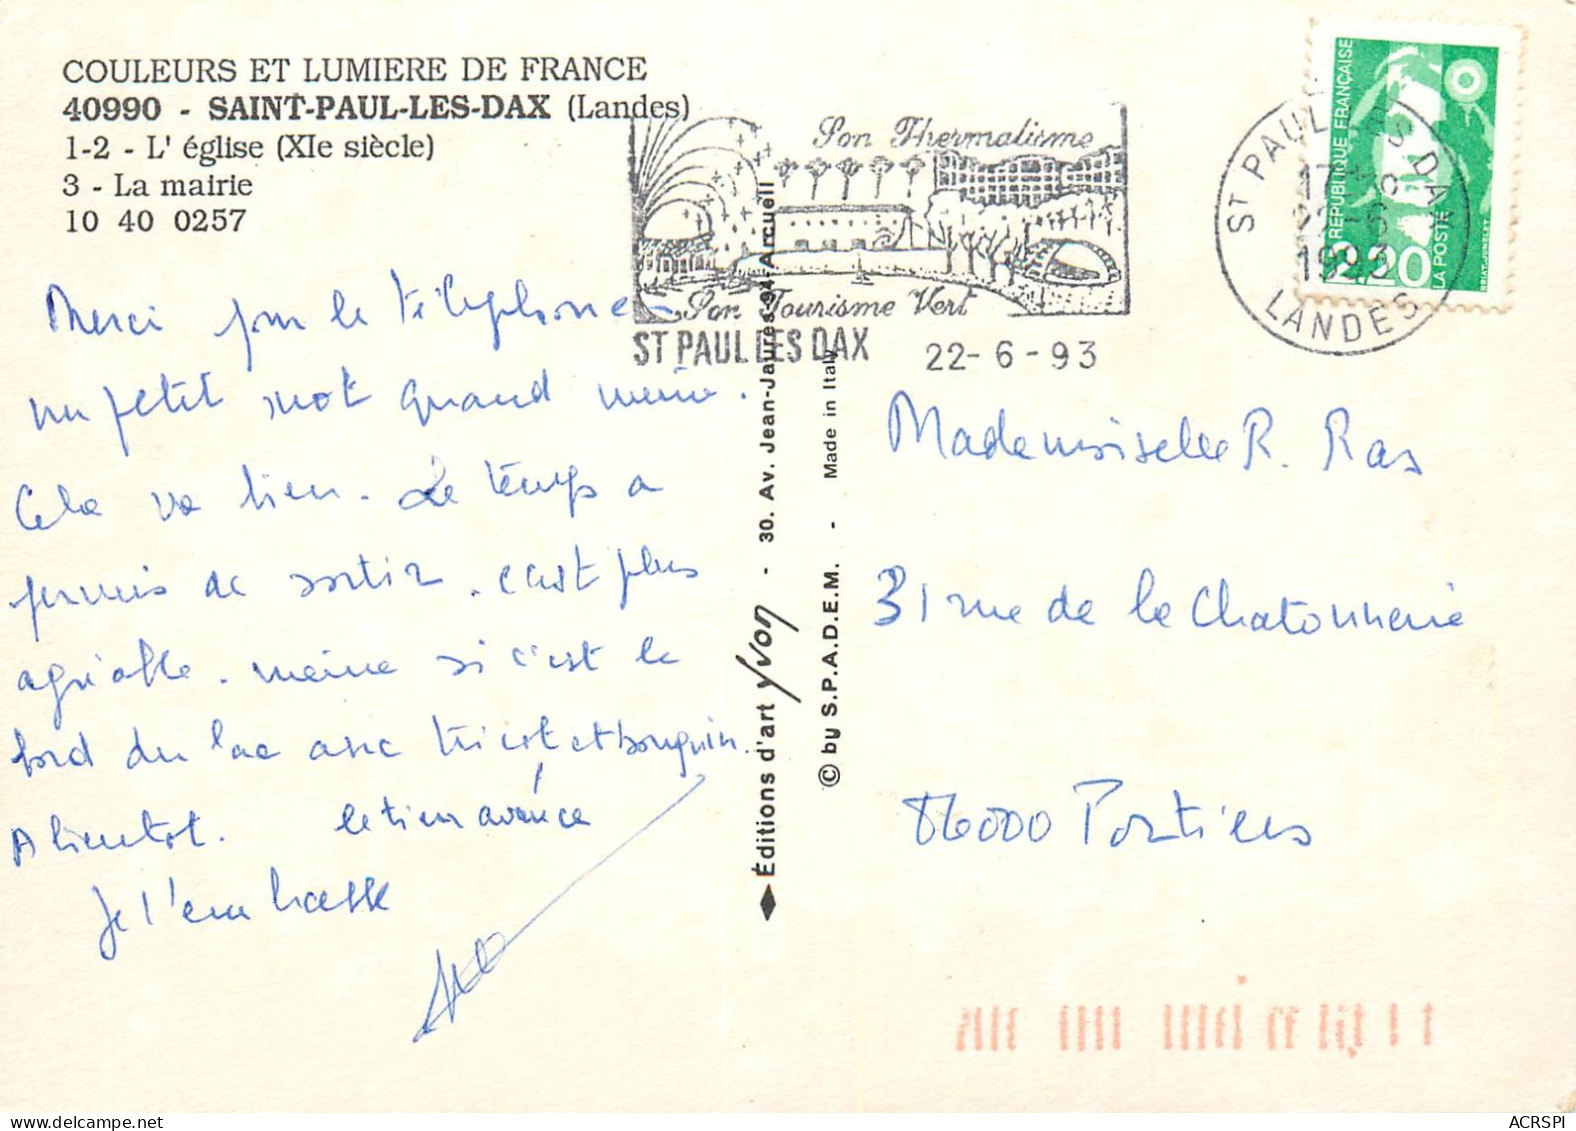 COULEURS ET LUMIERE DE FRANCE
40990 - SAINT-PAUL-LES-DAX (Landes)
1-2 - L' église (XIe siècle)
3 - La mairie
10 40 0257
Merci pour le téléphone -
un petit mot quand même.
Cela va bien. Le temps a
permis de sortir. c'est plus
agréable. même si c'est le
bord du lac avec tricot et bouquin.
A bientôt.
Je t'embrasse
Son Thermalisme
Son Tourisme Vert
ST PAUL LES DAX 22-6-93
ST PAUL LES DAX
17 H
22-6
1993
LANDES
REPUBLIQUE FRANÇAISE
2,20
LA POSTE
Éditions d'art Yvon - 30. Av. Jean-Jaurès-94-Arcueil
© by S.P.A.D.E.M. - Made in Italy
Mademoiselle R. Ras
31 rue de la Chatonnerie
86000 Poitiers
ACRSPI